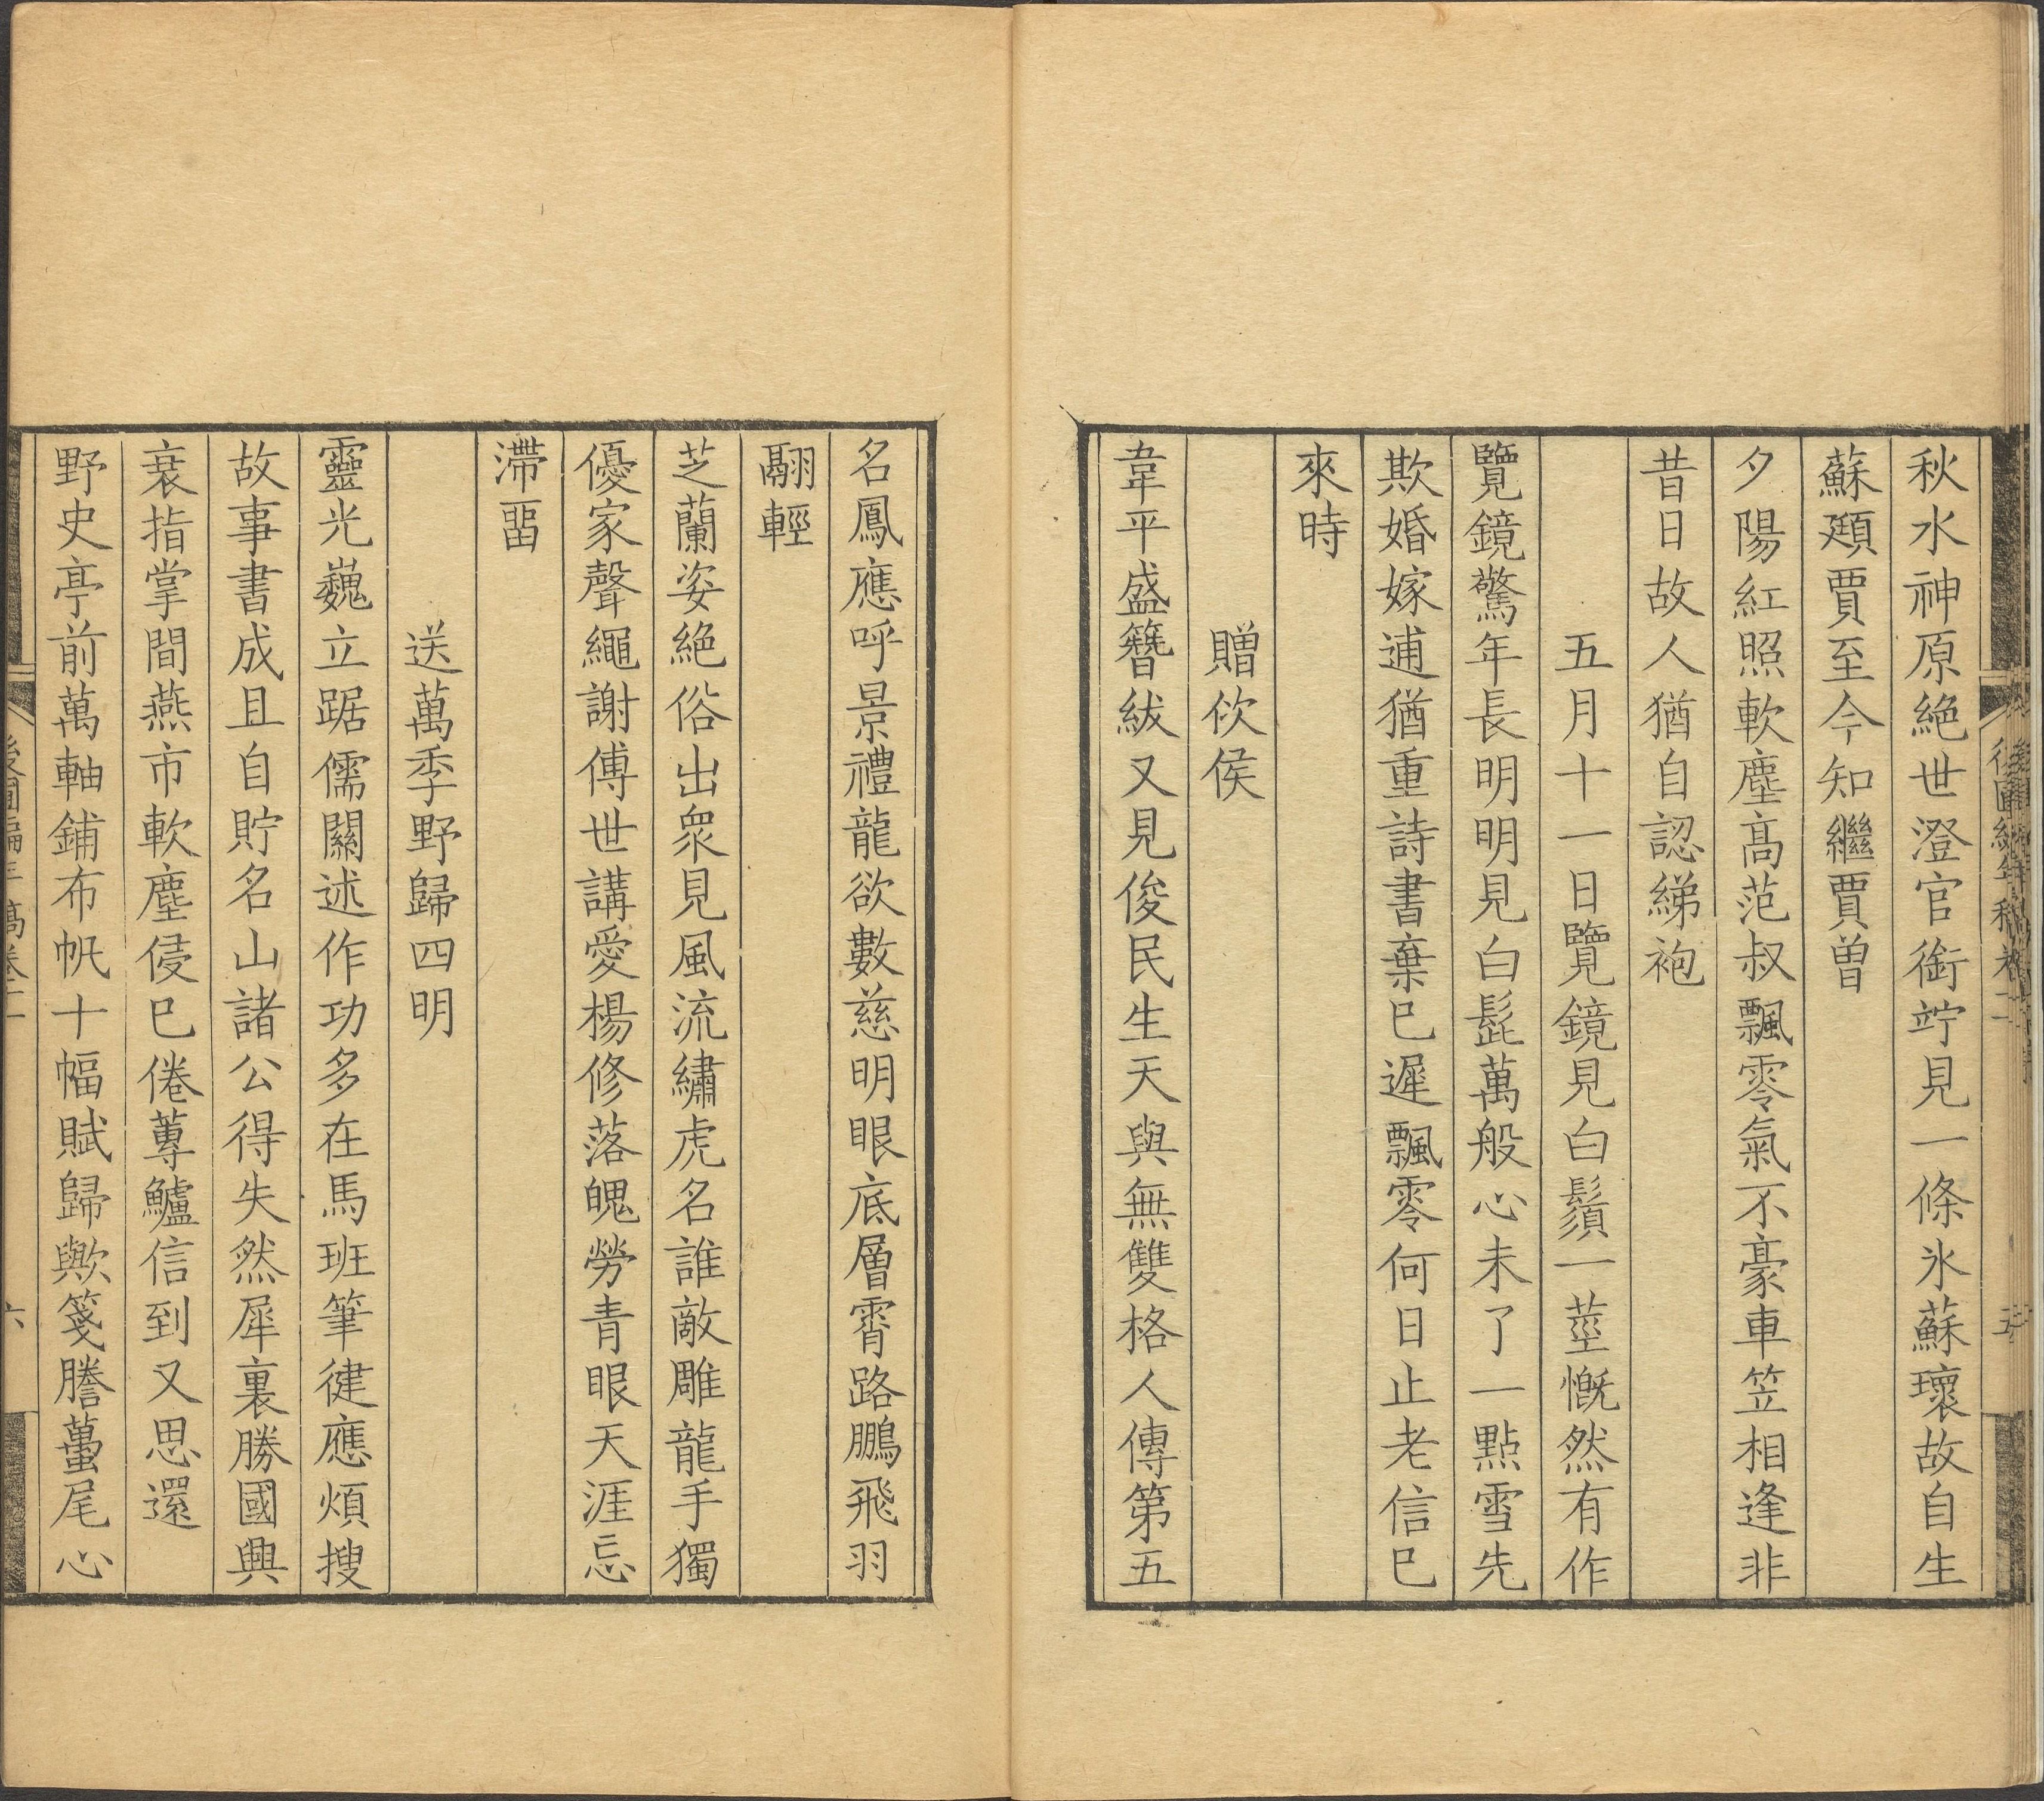 秋水神原絕世澄官銜竚見一條氷蘇瓌故自生
蘇頲賈至今知繼賈曾
夕陽紅照軟塵高范叔飄零氣不豪車笠相逢非
昔日故人猶自認綈袍
五月十一日覽鏡見白鬚一莖慨然有作
覽鏡驚年長明明見白髭萬般心未了一點雪先
欺婚嫁逋猶重詩書棄已遲飄零何日止老信已
來時
贈佽侯
韋平盛簪紱又見俊民生天與無雙格人傳第五
名鳳應呼景禮龍欲數慈明眼底層霄路鵬飛羽
翮輕
芝蘭姿絕俗出衆見風流繡虎名誰敵雕龍手獨
優家聲繩謝傅世講愛楊修落魄勞青眼天涯忘
滯畱
送萬季野歸四明
靈光巍立踞儒關述作功多在馬班筆健應煩搜
故事書成且自貯名山諸公得失然犀裏勝國興
衰指掌間燕市軟塵侵已倦蓴鱸信到又思還
野史亭前萬軸鋪布帆十幅賦歸歟箋謄蠆尾心
後圃編年稿卷二
六